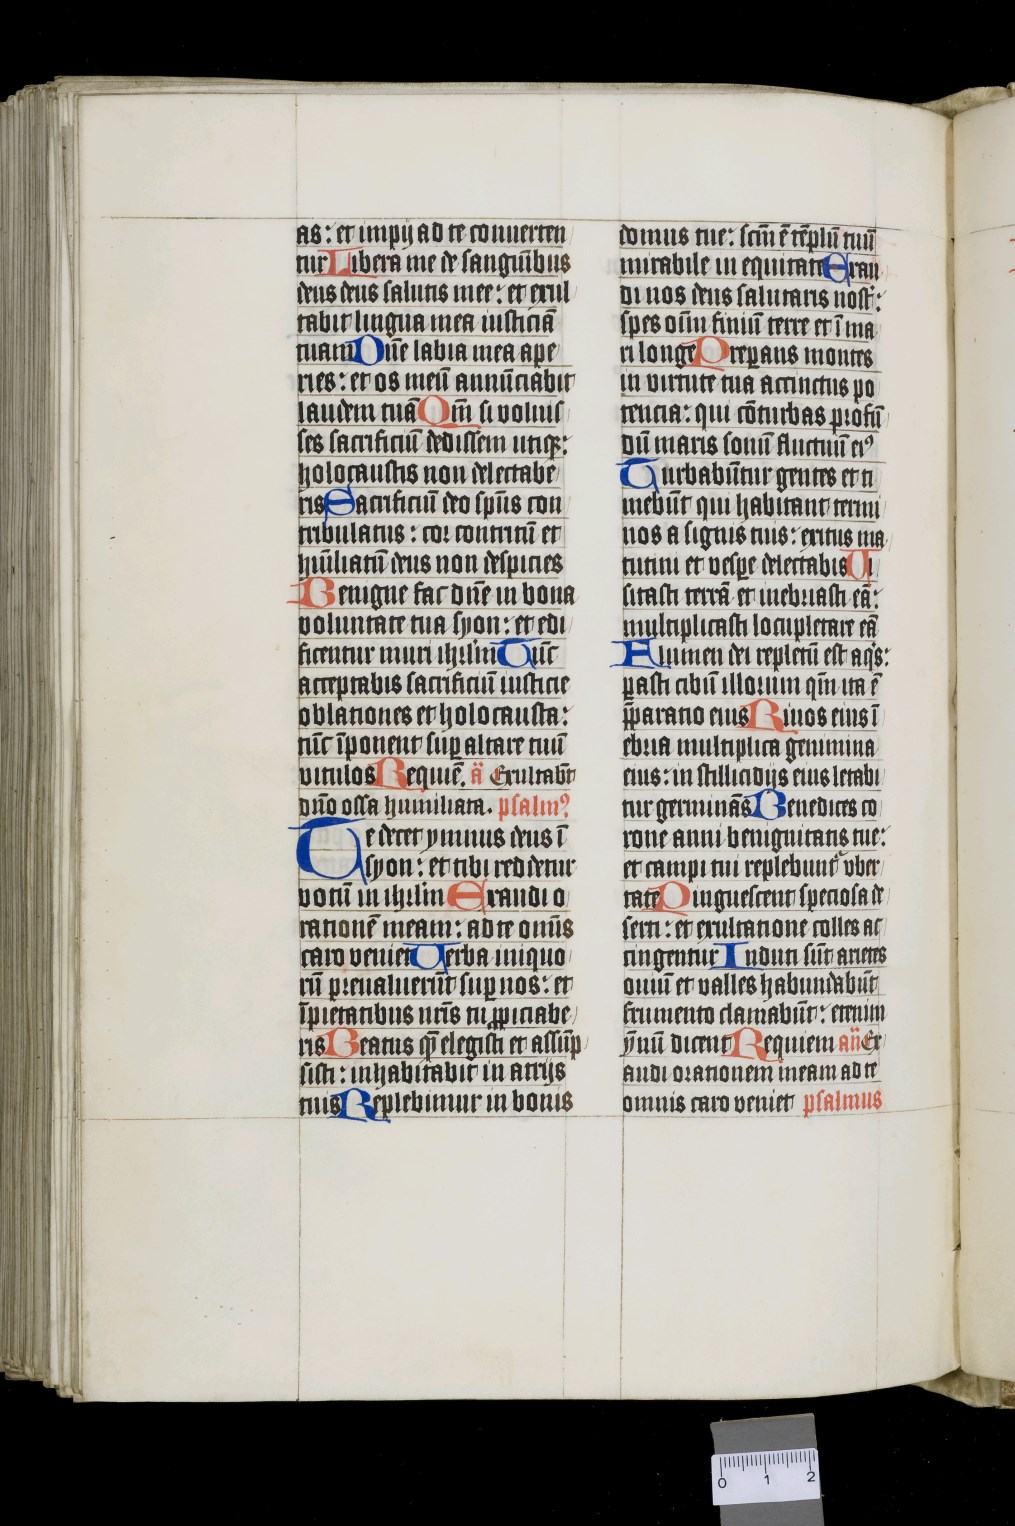 as: et impij ad te conuerten
tur Libera me de sanguībus
deus deus salutis mee: et exul
tabit lingua mea iusticiā
tuam Dn̄e labia mea ape
ries: et os meū annūciabit
laudem tuā Qm̄ si voluis
ses sacrificiū dedissem utiqꝫ:
holocaustis non delectabe
ris Sacrificiū deo sp̄us con
tribulatus: cor contritū et
hūiliatū deus non despicies
Benigne fac dn̄e in bona
voluntate tua syon: et edi
ficentur muri ihrl̄m Tūc
acceptabis sacrificiū iusticie
oblationes et holocausta:
tūc īponent suꝑ altare tuū
vitulos Requiē. ā Exultabūt
dn̄o ossa humiliata. psalmꝰ
Te decet ymnus deus ī
syon: et tibi reddetur
votū in ihrl̄m Exaudi o
rationē meam: ad te omīs
caro veniet Verba iniquo
rū preualuerūt suꝑ nos: et
īpietatibus nr̄is tu ꝓpiciabe
ris Beatus quē elegisti et assūp
sisti: inhabitabit in atrijs
tuis Replebimur in bonis
domus tue: scm̄ ē tēplū tuū
mirabile in equitate Exau
di nos deus salutaris nost̄:
spes oīm finiū terre et ī ma
ri longe Preparans montes
in virtute tua accinctus po
tencia: qui cōturbas profū
dū maris sonū fluctuū eiꝰ
Turbabūtur gentes et ti
mebūt qui habitant termi
nos a signis tuis: exitus ma
tutini et vespe delectabis Vi
sitasti terrā et inebriasti eā:
multiplicasti locupletare eā
Flumen dei repletū est aqs:
ꝑasti cibū illorum qm̄ ita ē
p̄paratio eius Riuos eius ī
ebria multiplica genimina
eius: in stillicidijs eius letabi
tur germinās Benedices co
rone anni benignitatis tue:
et campi tui replebunt vber
tate Pinguescent speciosa de
serti: et exultatione colles ac
cingentur Induti sūt arietes
ouiū et valles habundabūt
frumento clamabūt: etenim
ȳnū dicent Requiem an̄ Ex
audi orationem meam ad te
omnis caro veniet psalmus
0 1 2